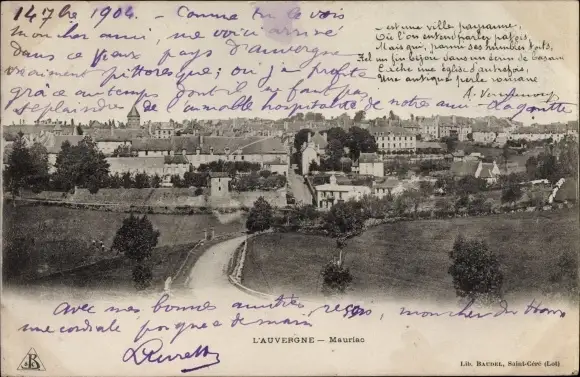 14 7bre 1904 - Comme tu le vois
mon cher ami, me voici arrivé
dans ce vieux pays d'auvergne
vraiment pittoresque; où j'ai profité
grâce au temps dont il ne faut pas
se plaindre de l'aimable hospitalité de notre ami Lagatte
C'est une ville paysanne,
Où l'on entend parler patois,
Mais qui, parmi ses humbles toits,
Tel un fin bijou dans un écrin de basane
Cache une église d'autrefois,
Une antique perle romane
A.
Avec mes bonnes amitiés reçois, mon cher
une cordiale poignée de main
L'AUVERGNE - Mauriac
B
Lib. BAUDEL, Saint-Céré (Lot)